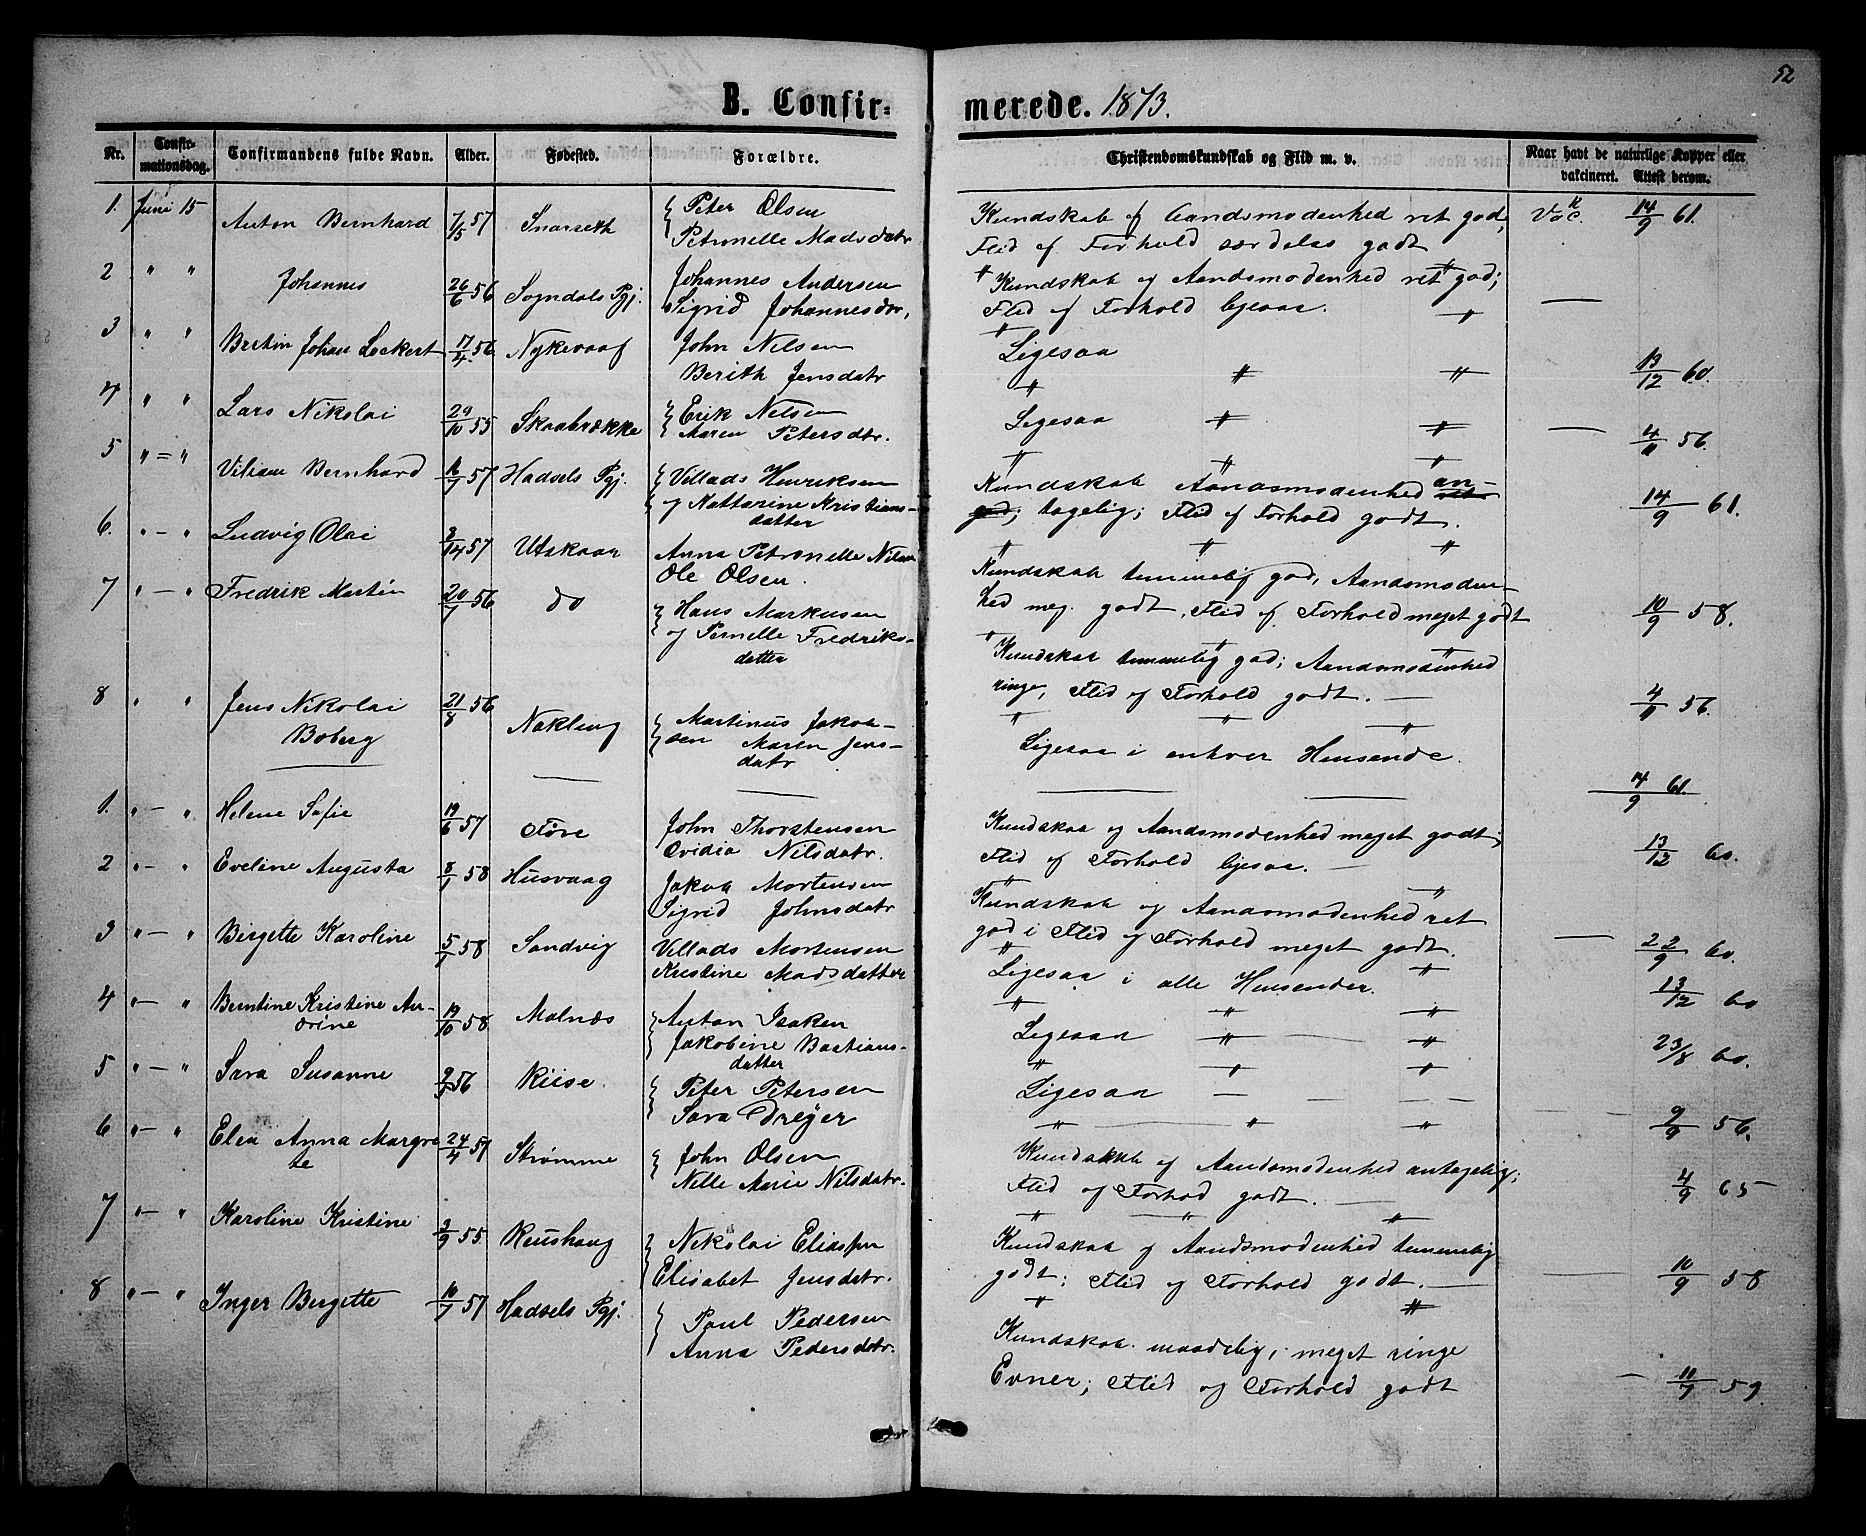 52
B. Confirmerede. 1873.
Nr. Confirmationsdag. Confirmandens fulde Navn. Alder. Fødested. Forældre. Christendomskundskab og Flid m. v. Naar havt de naturlige Kopper eller vakcineret. Attest derom.
1. Juni 15 Anton Bernhard 7/5 57 Snarseth { Peter Olsen Kundskab og Aandsmodenhed ret god, Vac. 14/9 61.
Petronelle Madsdatr Flid og Forhold særdeles godt
2 " " Johannes 26/6 56 Sogndals Pgj. Johannes Andersen Kundskab og Aandsmodenhed ret god;
Sigrid Johannesdtr, Flid og Forhold ligesaa. —
3 " " Johan 17/4 56 John Nilsen Ligesaa
Berith Jensdatr " " " 13/12 60.
4 " " Lars Nikolai 29/10 55 Skaabrække { Erik Nilsen Ligesaa " "
Maren Petersdtr. — 4/11 56.
5 " = " Bernhard 16/7 57 Hadsels Pgj. { Villads Henriksen Kundskab Aandsmodenhed an-
og Kristians- tagelig; Flid og Forhold godt. 14/9 61.
datter
6. " - " Ludvig Olai 57 Utskaar Anna Petronelle
Ole Olsen. Kundskab temmelig god, Aandsmoden-
7 " - " Fredrik Martin 20/1 56 do { Hans Markusen hed meg. godt, Flid og Forhold meget godt 10/9 58.
og Pernelle Fredriks-
datter Kundskab temmelig god; Aandsmodenhed
8 " " Jens Nikolai 21/8 56 Nakling ringe, Flid og Forhold godt. — 4/11 56.
Boberg { Martinus Jakob-
sen Maren Jens- Ligesaa i enhver Hensende.
datr
14/9 61.
1. " - " Helene Sofie 19/6 57 Føre John Thorstensen Kundskab og Aandsmodenhed meget godt;
Ovidia Nilsdatr. Flid og Forhold ligesaa. — 13/12 60.
2 " - " Eveline Augusta 8/1 58 Husvaag Jakob Mortensen Kundskab og Aandsmodenhed ret
Sigrid Johnsdatr god i Flid og Forhold meget godt.
3 " - " Bergette Karoline 5/1 58 Sandvig Villads Mortensen — 22/9 60.
Kristine Madsdatter Ligesaa i alle Hensender.
4 " - " Berntine Kristine An- 19/10 58 Malnæs { Anton Isaksen 13/12 60
drine Jakobine Bastians- Ligesaa " "
datter
5 " - " Sara Susanne 56 Riise. { Peter Petersen 23/8 60.
Sara Dreyer Ligesaa — — —
6 " - " Elen Anna Margre- 24/4 57 Strømme { John Olsen 9/9 56.
te Nille Marie Nilsdatr. Kundskab og Aandsmodenhed antagelig;
Flid og Forhod godt. — 4/9 65
7 " - " Karoline Kristine 2/9 55 Reushaug { Nikolai Eliassen Kundskab og Aandsmodenhed temmelig
Elisabet Jensdatr. godt; Flid og Forhold godt. — 10/9 58
8 " - " Inger Bergette 10/7 57 Hadsels Pgj. { Paul Pedersen Kundskab maadelig, meget ringe
Anna Pedersdatr. Evner; Flid og Forhold godt — 11/7 59.